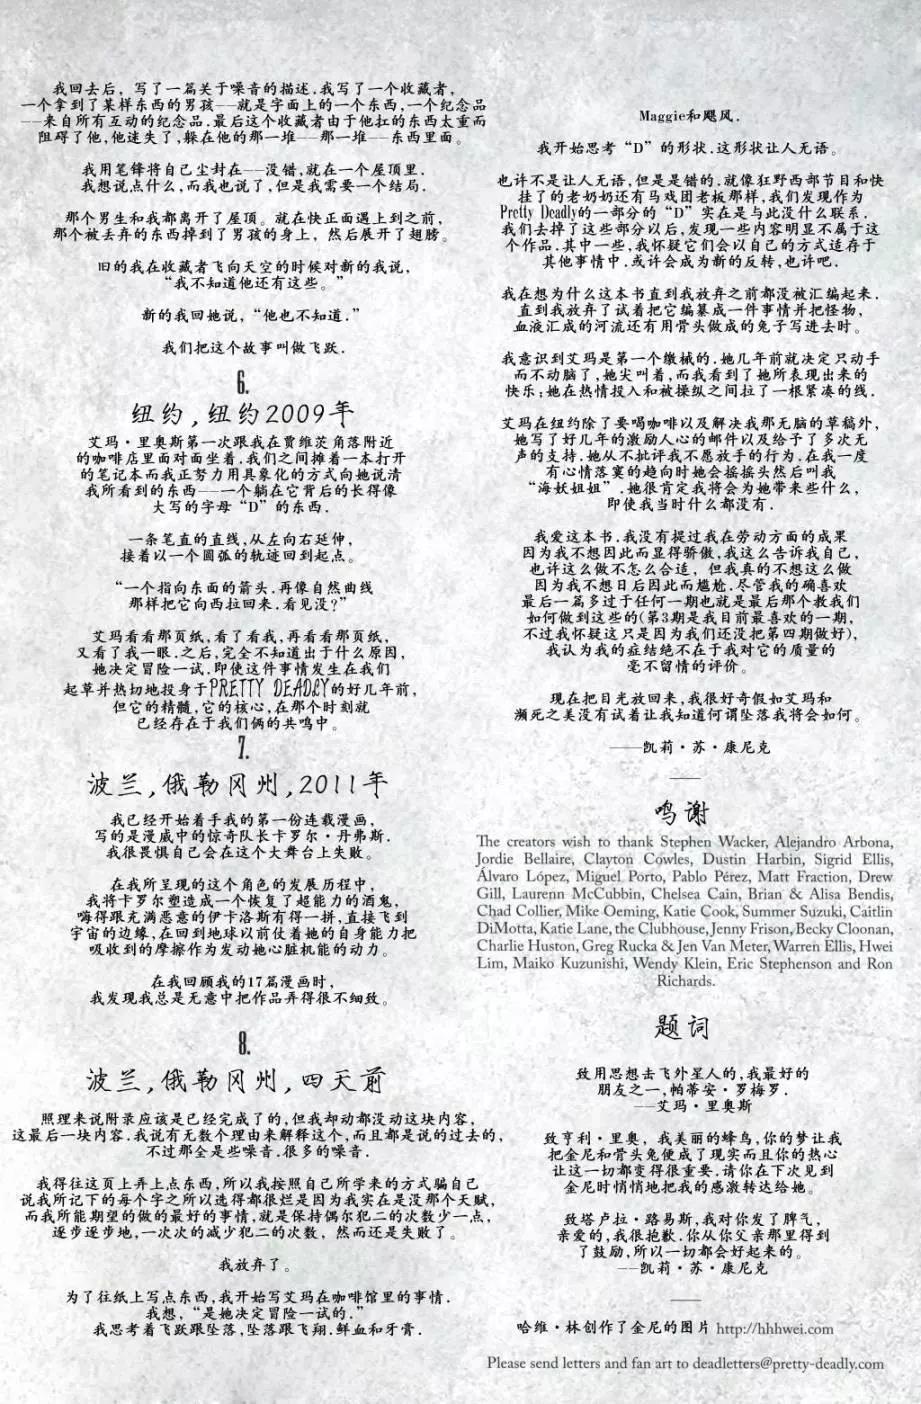 我回去后，写了一篇关于噪音的描述.我写了一个收藏者,
一个拿到了某样东西的男孩——就是字面上的一个东西,一个纪念品
——来自所有互动的纪念品.最后这个收藏者由于他扛的东西太重而
阻碍了他,他迷失了,躲在他的那一堆——那一堆——东西里面。
我用笔锋将自己尘封在——没错,就在一个屋顶里.
我想说点什么,而我也说了,但是我需要一个结局.
那个男生和我都离开了屋顶。就在快正面遇上到之前,
那个被丢弃的东西掉到了男孩的身上，然后展开了翅膀。
旧的我在收藏者飞向天空的时候对新的我说,
“我不知道他还有这些。”
新的我回她说，“他也不知道.”
我们把这个故事叫做飞跃.
6.
纽约,纽约2009年
艾玛·里奥斯第一次跟我在贾维茨角落附近
的咖啡店里面对面坐着.我们之间摊着一本打开
的笔记本而我正努力用具象化的方式向她说清
我所看到的东西——一个躺在它背后的长得像
大写的字母“D”的东西.
一条笔直的直线,从左向右延伸,
接着以一个圆弧的轨迹回到起点。
“一个指向东面的箭头.再像自然曲线
那样把它向西拉回来.看见没?”
艾玛看看那页纸,看了看我,再看看那页纸,
又看了我一眼.之后,完全不知道出于什么原因,
她决定冒险一试.即使这件事情发生在我们
起草并热切地投身于PRETTY DEADLY的好几年前,
但它的精髓,它的核心,在那个时刻就
已经存在于我们俩的共鸣中。
7.
波兰,俄勒冈州,2011年
我已经开始着手我的第一份连载漫画,
写的是漫威中的惊奇队长卡罗尔·丹弗斯.
我很畏惧自己会在这个大舞台上失败。
在我所呈现的这个角色的发展历程中,
我将卡罗尔塑造成一个恢复了超能力的酒鬼,
嗨得跟充满恶意的伊卡洛斯有得一拼,直接飞到
宇宙的边缘,在回到地球以前仗着她的自身能力把
吸收到的摩擦作为发动她心脏机能的动力。
在我回顾我的17篇漫画时,
我发现我总是无意中把作品弄得很不细致。
8.
波兰,俄勒冈州,四天前
照理来说附录应该是已经完成了的,但我却动都没动这块内容,
这最后一块内容.我说有无数个理由来解释这个,而且都是说的过去的,
不过那全是些噪音.很多的噪音.
我得往这页上弄上点东西,所以我按照自己所学来的方式骗自己
说我所记下的每个字之所以选得都很烂是因为我实在是没那个天赋,
而我所能期望的做的最好的事情,就是保持偶尔犯二的次数少一点,
逐步逐步地,一次次的减少犯二的次数，然而还是失败了。
我放弃了。
为了往纸上写点东西,我开始写艾玛在咖啡馆里的事情.
我想，“是她决定冒险一试的.”
我思考着飞跃跟坠落,坠落跟飞翔.鲜血和牙膏.
Maggie和飓风.
我开始思考“D”的形状.这形状让人无语。
也许不是让人无语,但是是错的.就像狂野西部节目和快
挂了的老奶奶还有马戏团老板那样,我们发现作为
Pretty Deadly的一部分的“D”实在是与此没什么联系.
我们去掉了这些部分以后,发现一些内容明显不属于这
个作品.其中一些,我怀疑它们会以自己的方式适存于
其他事情中.或许会成为新的反转,也许吧.
我在想为什么这本书直到我放弃之前都没被汇编起来.
直到我放弃了试着把它编纂成一件事情并把怪物,
血液汇成的河流还有用骨头做成的兔子写进去时。
我意识到艾玛是第一个缴械的.她几年前就决定只动手
而不动脑了,她尖叫着,而我看到了她所表现出来的
快乐;她在热情投入和被操纵之间拉了一根紧凑的线.
艾玛在纽约除了要喝咖啡以及解决我那无脑的草稿外,
她写了好几年的激励人心的邮件以及给予了多次无
声的支持.她从不批评我不愿放手的行为.在我一度
有心情落寞的趋向时她会摇摇头然后叫我
“海妖姐姐”.她很肯定我将会为她带来些什么,
即使我当时什么都没有.
我爱这本书.我没有提过我在劳动方面的成果
因为我不想因此而显得骄傲,我这么告诉我自己,
也许这么做不怎么合适，但我真的不想这么做
因为我不想日后因此而尴尬.尽管我的确喜欢
最后一篇多过于任何一期也就是最后那个教我们
如何做到这些的(第3期是我目前最喜欢的一期,
不过我怀疑这只是因为我们还没把第四期做好),
我认为我的症结绝不在于我对它的质量的
毫不留情的评价。
现在把目光放回来,我很好奇假如艾玛和
濒死之美没有试着让我知道何谓坠落我将会如何。
——凯莉·苏·康尼克
鸣谢
The creators wish to thank Stephen Wacker, Alejandro Arbona,
Jordie Bellaire, Clayton Cowles, Dustin Harbin, Sigrid Ellis,
Álvaro López, Miguel Porto, Pablo Pérez, Matt Fraction, Drew
Gill, Laurenn McCubbin, Chelsea Cain, Brian & Alisa Bendis,
Chad Collier, Mike Oeming, Katie Cook, Summer Suzuki, Caitlin
DiMotta, Katie Lane, the Clubhouse, Jenny Frison, Becky Cloonan,
Charlie Huston, Greg Rucka & Jen Van Meter, Warren Ellis, Hwei
Lim, Maiko Kuzunishi, Wendy Klein, Eric Stephenson and Ron
Richards.
题词
致用思想去飞外星人的,我最好的
朋友之一,帕蒂安·罗梅罗.
——艾玛·里奥斯
致亨利·里奥，我美丽的蜂鸟,你的梦让我
把金尼和骨头兔便成了现实而且你的热心
让这一切都变得很重要.请你在下次见到
金尼时悄悄地把我的感激转达给她。
致塔卢拉·路易斯,我对你发了脾气,
亲爱的,我很抱歉.你从你父亲那里得到
了鼓励,所以一切都会好起来的。
——凯莉·苏·康尼克
哈维·林创作了金尼的图片 http://hhhwei.com
Please send letters and fan art to deadletters@pretty-deadly.com